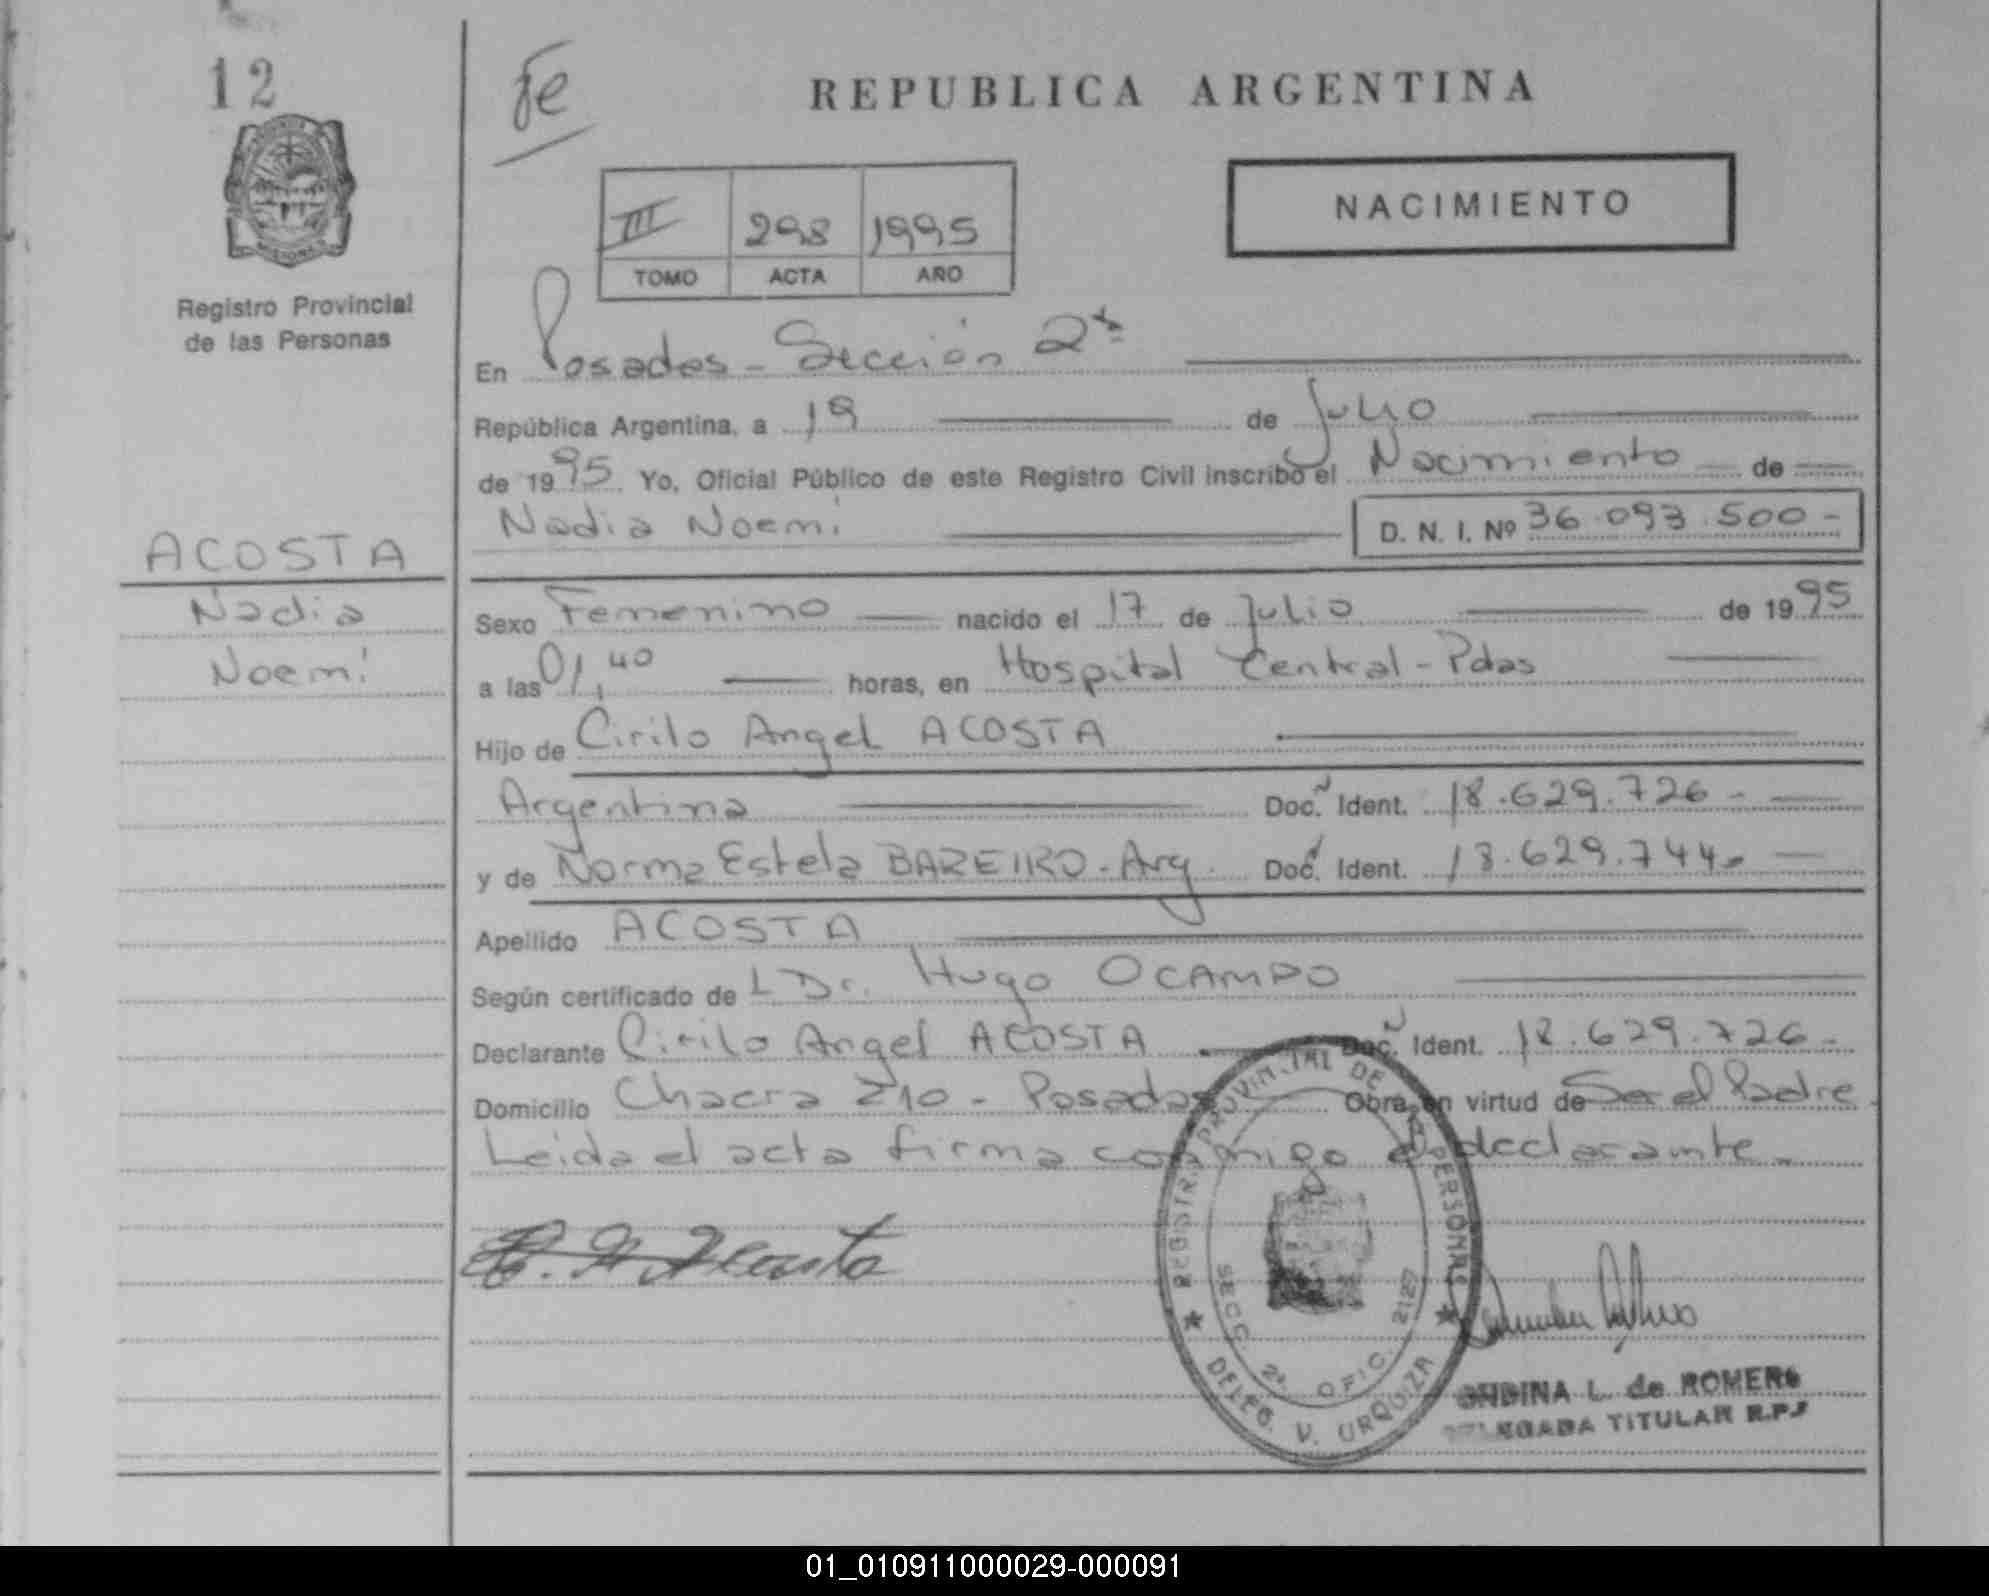 12
Registro Provincial
de las Personas
ACOSTA
Nadia
Noemí
REPUBLICA ARGENTINA
NACIMIENTO
III 298 1995
TOMO ACTA AÑO
En Posadas - Sección 2ª
República Argentina, a 19 de Julio
de 1995 Yo, Oficial Público de este Registro Civil inscribo el Nacimiento de
Nadia Noemí D. N. I. Nº 36.093.500-
Sexo Femenino nacido el 17 de Julio de 1995
a las 01,40 horas, en Hospital Central - Pdas
Hijo de Cirilo Angel ACOSTA
Argentina Doc. Ident. 18.629.726-
y de Norma Estela BAREIRO - Arg. Doc. Ident. 18.629.744-
Apellido ACOSTA
Según certificado de L Dr. Hugo OCAMPO
Declarante Cirilo Angel ACOSTA Doc. Ident. 18.629.726-
Domicilio Chacra 210 - Posadas Obra en virtud de Ser el Padre.
Leida el acta firma conmigo el declarante-
C. A. Acosta
REGISTRO PROVINCIAL DE LAS PERSONAS
SECC. 2ª OFIC. 2127
DELEG. V. URQUIZA
ONDINA L. de ROMERO
DELEGADA TITULAR R.P.
01_010911000029-000091